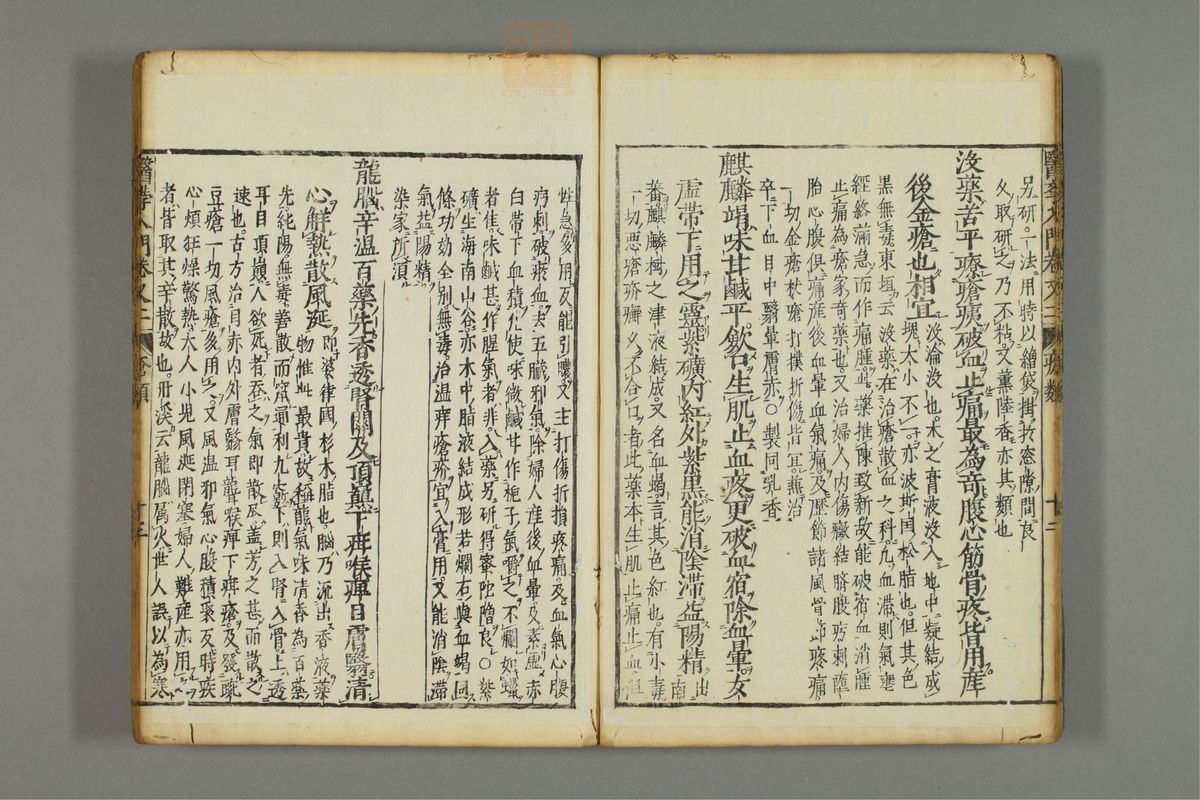 另研一法用時以繒袋掛於窓隙間良
久取研之乃不粘又薫陸香亦其類也
没藥苦平療瘡瘍破血止痛最為奇腹心筋骨疼皆用産
後金瘡也相宜
没淪没也木之膏液没入地中凝結成
塊大小不一亦波斯国松脂也但其色
黒無毒東垣云没藥在治瘡散血之科凡血滯則氣壅
經絡滿急而作痛腫此藥推陳致新故能破宿血消腫
止痛為瘡家奇藥也又治婦人内傷癥結臍腹㽲刺墮
胎心腹俱痛産後血暈血氣痛及歷節諸風骨節疼痛
一切金瘡杖瘡打撲折傷皆宜兼治
卒下血目中翳暈膚赤○製同乳香
麒麟竭味甘鹹平飲石生肌止血疼更破血宿除血暈女
虚帶下用之靈紫礦内紅外紫黒能消陰滯益陽精
出
南
蕃麒麟樹之津液結成又名血竭言其色紅也有小毒
一切悪瘡疥癬久不合口者此藥本生肌止痛止血
性急多用及能引膿又主打傷折損疼痛及血氣心腹
㽲刺破瘀血去五臟邪氣除婦人産後血暈及素虚赤
白帶下血積凡使味微鹹甘作梔子氣嚼之不爛如蠟
者佳味鹹甚作腥氣者非入藥另研得蜜陀僧良○紫
礦生海南山谷亦木中脂液結成形若爛石與血竭同
條功効全別無毒治温痒瘡疥宜入膏用又能消陰滯
氣益陽精
染家所須
龍腦辛温百藥先香透腎關及頂顛下疳喉痺目膚翳清
心解熱散風涎
即婆律國杉木脂也腦乃流出香液藥
物惟此最貴故稱龍氣味清香為百藥
先純陽無毒善散而竄通利九竅下則入腎入骨上透
耳目頂巔人欲死者吞之氣即散尽蓋芳之甚而散之
速也古方治目赤内外膚翳耳聾喉痺下疳瘡及發
豆瘡一切風瘡多用之又風温邪氣心腹積聚及時疾
心煩狂燥驚熱大人小児風涎閉塞婦人難産亦用
者皆取其辛散故也丹溪云龍腦属火世人誤以為寒